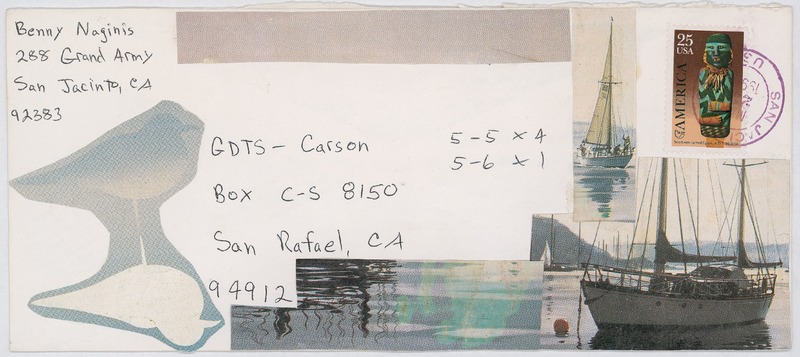 Benny Naginis
288 Grand Army
San Jacinto, CA
92383
GDTS - Carson
5-5 x 4
5-6 x 1
Box C-S 8150
San Rafael, CA
94912
25
USA
AMERICA
SAN JAC